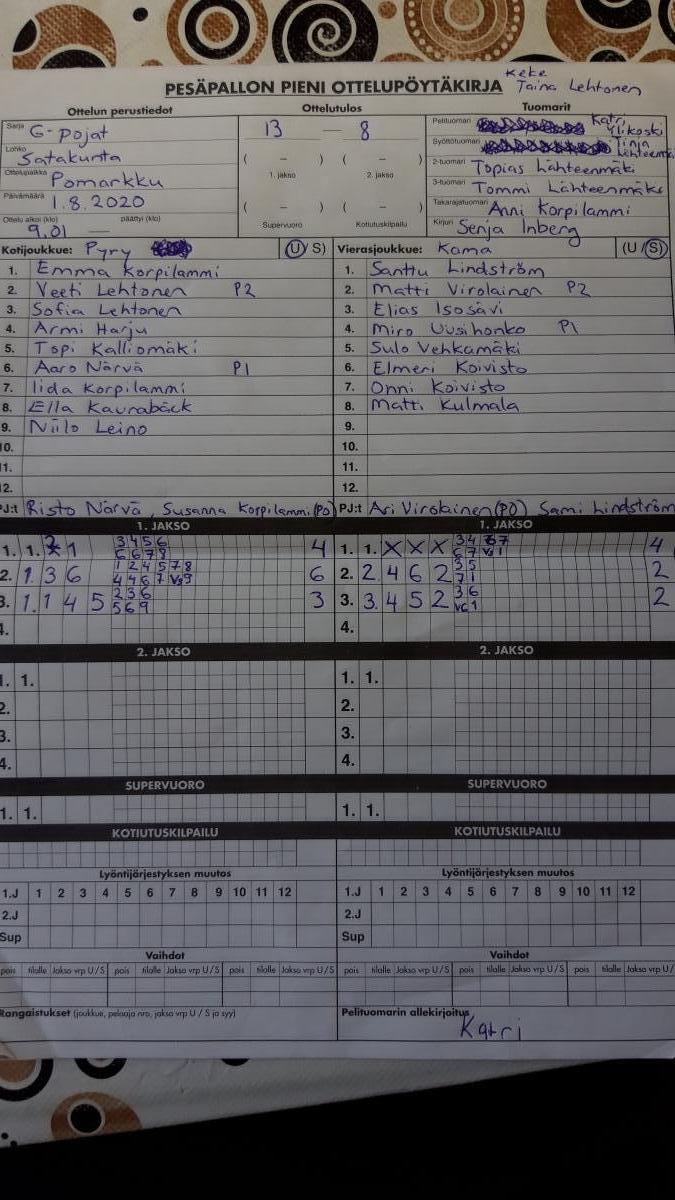 Keke
PESÄPALLON PIENI OTTELUPÖYTÄKIRJA Taina Lehtonen
Ottelun perustiedot Ottelutulos Tuomarit
Sarja G-pojat 13 – 8 Pelituomari Katri Ylikoski
Lohko Satakunta Syöttötuomari Tinja Lehteenmä
( – ) ( – )
Ottelupaikka Pomarkku 1. jakso 2. jakso 2-tuomari Topias Lähteenmäki
Päivämäärä 1.8.2020 3-tuomari Tommi Lähteenmäki
( – ) ( – )
Ottelu alkoi (klo) päättyi (klo) Takarajatuomari Anni Korpilammi
9.01 — Supervuoro Kotiutuskilpailu Kirjuri Senja Inberg
Kotijoukkue: Pyry (U/S) Vierasjoukkue: Kama (U/S)
1. Emma Korpilammi 1. Santtu Lindström
2. Veeti Lehtonen P2 2. Matti Virolainen P2
3. Sofia Lehtonen 3. Elias Isosävi
4. Armi Harju 4. Miro Uusihonko P1
5. Topi Kalliomäki 5. Sulo Vehkamäki
6. Aaro Närvä P1 6. Elmeri Koivisto
7. Iida Korpilammi 7. Onni Koivisto
8. Ella Kaurabäck 8. Matti Kulmala
9. Niilo Leino 9.
10. 10.
11. 11.
12. 12.
PJ:t Risto Närvä, Susanna Korpilammi (PO) PJ:t Ari Virolainen (PO) Sami Lindström
1. JAKSO 1. JAKSO
1. 1. 1 3456 6678 4 1. 1. X X X 34 67 VS1 4
2. 1 3 6 124578 4467 VS9 6 2. 2 4 6 2 35 71 2
3. 1. 1 4 5 236 569 3 3. 3. 4 5 2 36 VG1 2
4. 4.
2. JAKSO 2. JAKSO
1. 1. 1. 1.
2. 2.
3. 3.
4. 4.
SUPERVUORO SUPERVUORO
1. 1. 1. 1.
KOTIUTUSKILPAILU KOTIUTUSKILPAILU
Lyöntijärjestyksen muutos Lyöntijärjestyksen muutos
1.J 1 2 3 4 5 6 7 8 9 10 11 12 1.J 1 2 3 4 5 6 7 8 9 10 11 12
2.J 2.J
Sup Sup
Vaihdot Vaihdot
pois tilalle Jakso vrp U/S pois tilalle Jakso vrp U/S pois tilalle Jakso vrp U/S pois tilalle Jakso vrp U/S pois tilalle Jakso vrp U/S pois tilalle Jakso vrp U/S
Rangaistukset (joukkue, pelaaja nro, jakso vrp U / S ja syy) Pelituomarin allekirjoitus
Katri